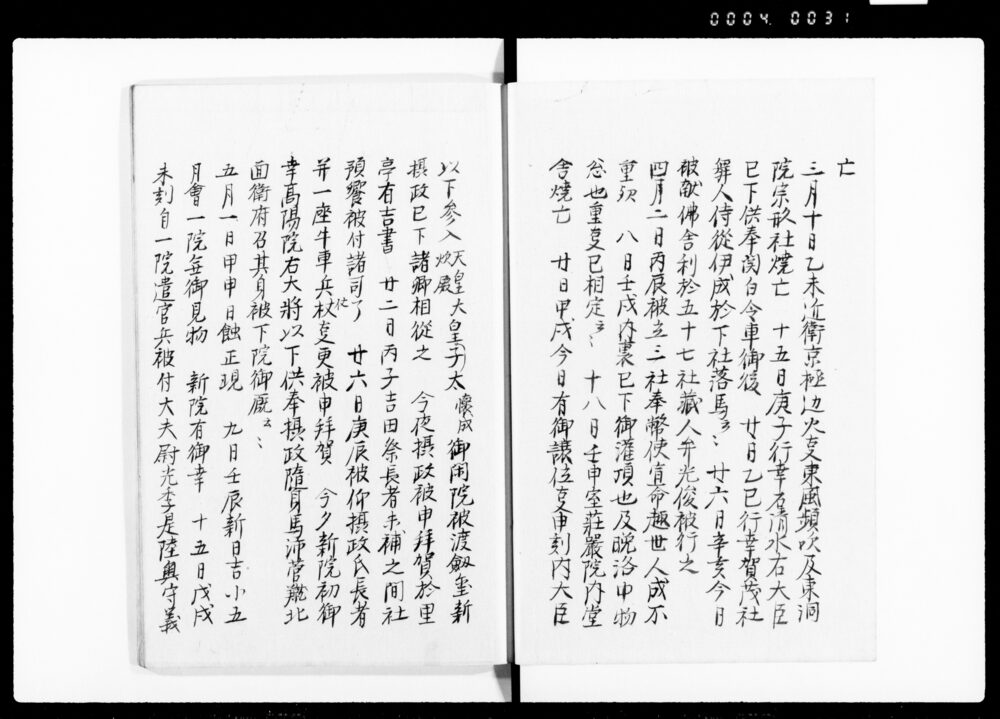 0004 0031
亡
三月十日乙未近衛京極辺火事東風頻吹及東洞
院宗形社焼亡　十五日庚子行幸石清水右大臣
已下供奉関白令車御後　廿日乙巳行幸賀茂社
舞人侍従伊成於下社落馬云々　廿六日辛亥今日
被献佛舎利於五十七社蔵人弁光俊被行之
四月二日丙辰被立三社奉幣使宣命趣世人成不
重　八日壬戌内裏已下御灌頂也及晩洛中物
忩也重事已相定云々　十八日壬申室荘厳院内堂
舎焼亡　廿日甲戌今日有御譲位事申刻内大臣
以下参入大炊殿　天皇大皇子太懐成御閑院被渡剱璽新
摂政已下諸卿相従之　今夜摂政被申拜賀於里
亭有吉書　廿二日丙子吉田祭長者未補之間社
預饗被付諸司了　廿六日庚辰被仰摂政氏長者
并一座牛車兵仗事更被申拜賀　今夕新院初御
幸高陽院右大将以下供奉摂政隨身馬沛菅難北
面衛府召其身被下院御厩云々
五月一日甲申日蝕正現　九日壬辰新日吉小五
月會一院無御見物　新院有御幸　十五日戊戌
未刻自一院遣官兵被付大夫尉光季是陸奥守義